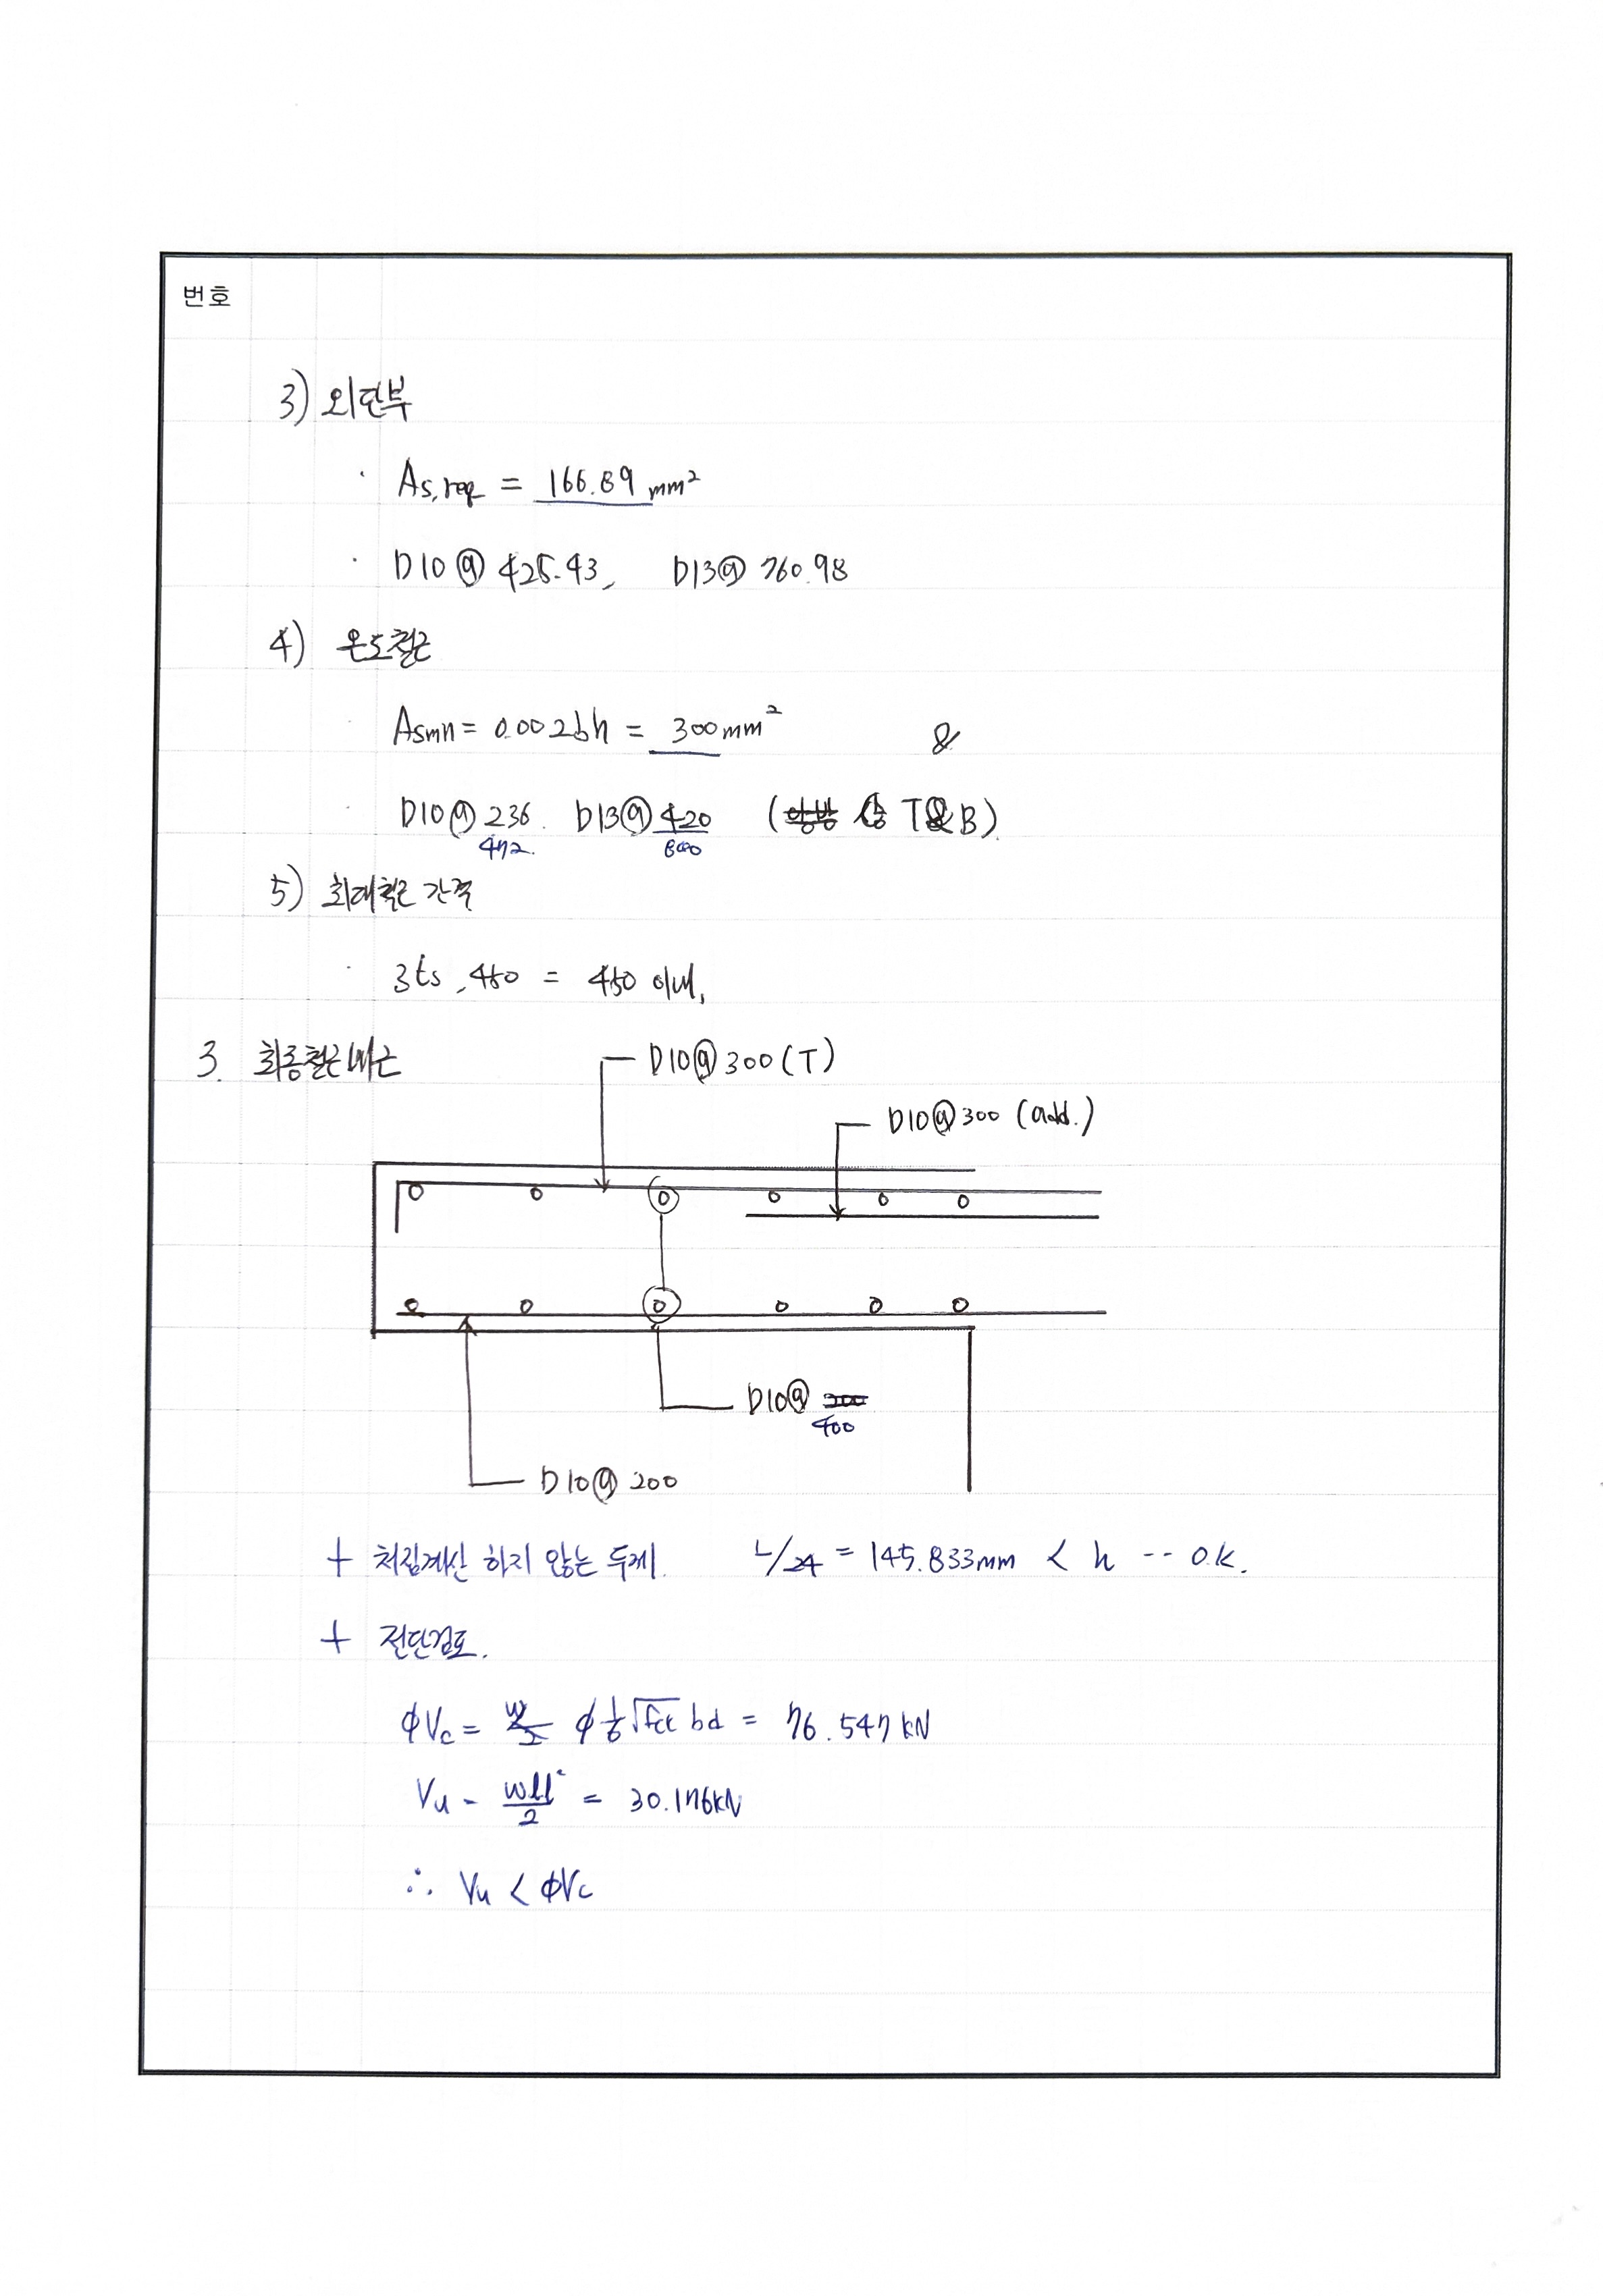 번호
3) 외단부
· As,req = 166.89 mm²
· D10@425.43, D13@760.98
4) 온도철근
· Asmin = 0.002bh = 300mm² &
· D10@236. D13@420 (양방 상 T&B)
472. 600
5) 최대철근 간격
· 3ts, 450 = 450 이내,
3. 최종철근배근
D10@300(T)
D10@300 (add.)
D10@300
400
D10@200
+ 처짐계산 하지 않는 두께. L/24 = 145.833mm < h -- O.K.
+ 전단검토.
φVc = φ 1/6 √fck bd = 76.547 kN
Vu = wl/2 = 30.176kN
∴ Vu < φVc